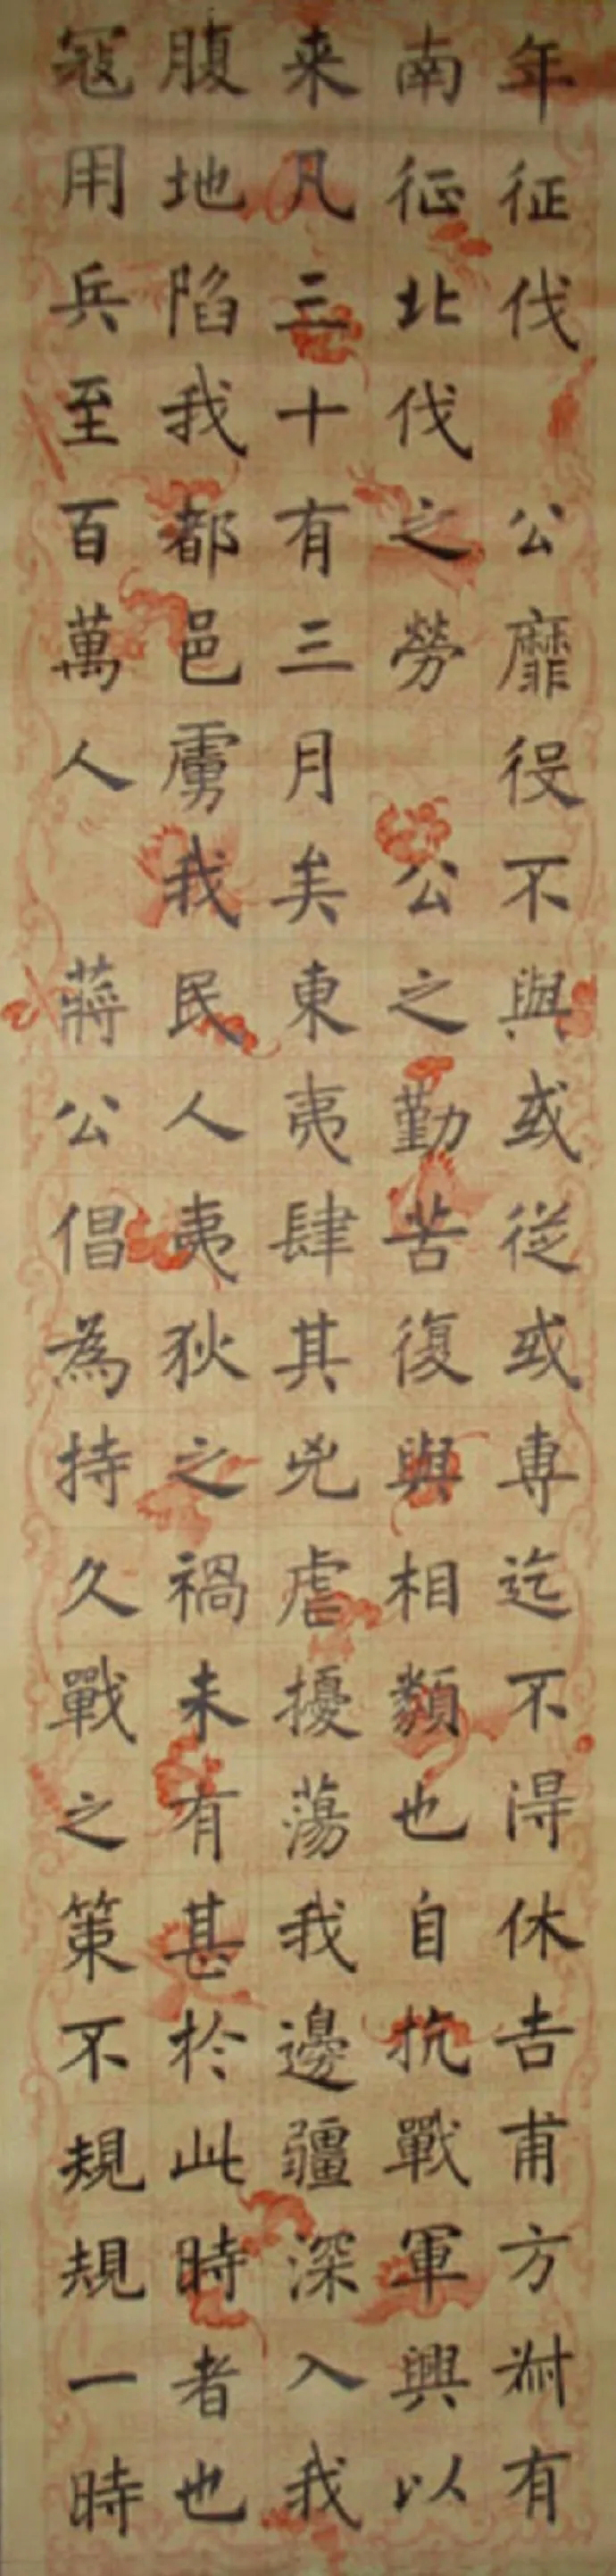 年征伐　公靡役不與或從或專迄不得休吉甫方叔有
南征北伐之勞　公之勤苦復與相類也自抗戰軍興以
来凡三十有三月矣東夷肆其兇虐擾蕩我邊疆深入我
腹地陷我都邑虜我民人夷狄之禍未有甚於此時者也
寇用兵至百萬人　蔣公倡為持久戰之策不規規一時